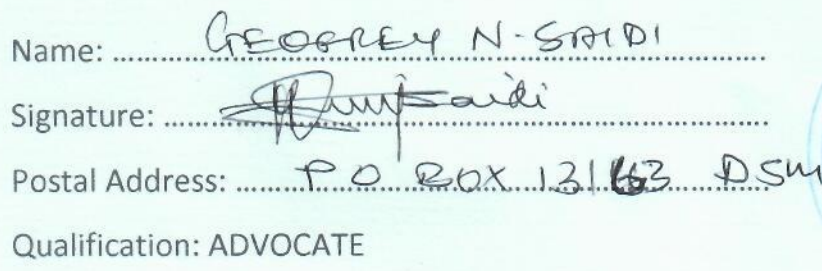 Name: GEOFREY N. SAIDI
Signature: Saidi
Postal Address: P O BOX 13163 DSM
Qualification: ADVOCATE